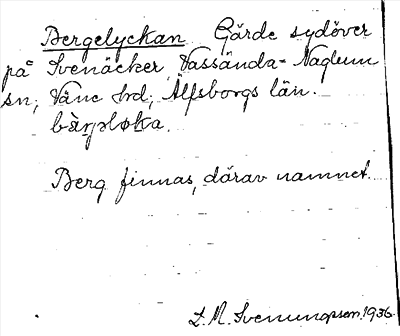 Bergelyckan Gärde sydöver
på Svenäcker, Vassända-Naglum
sn, Väne hrd, Älfsborgs län.
Berg finnas, därav namnet.
L. M. Svenungsson 1936